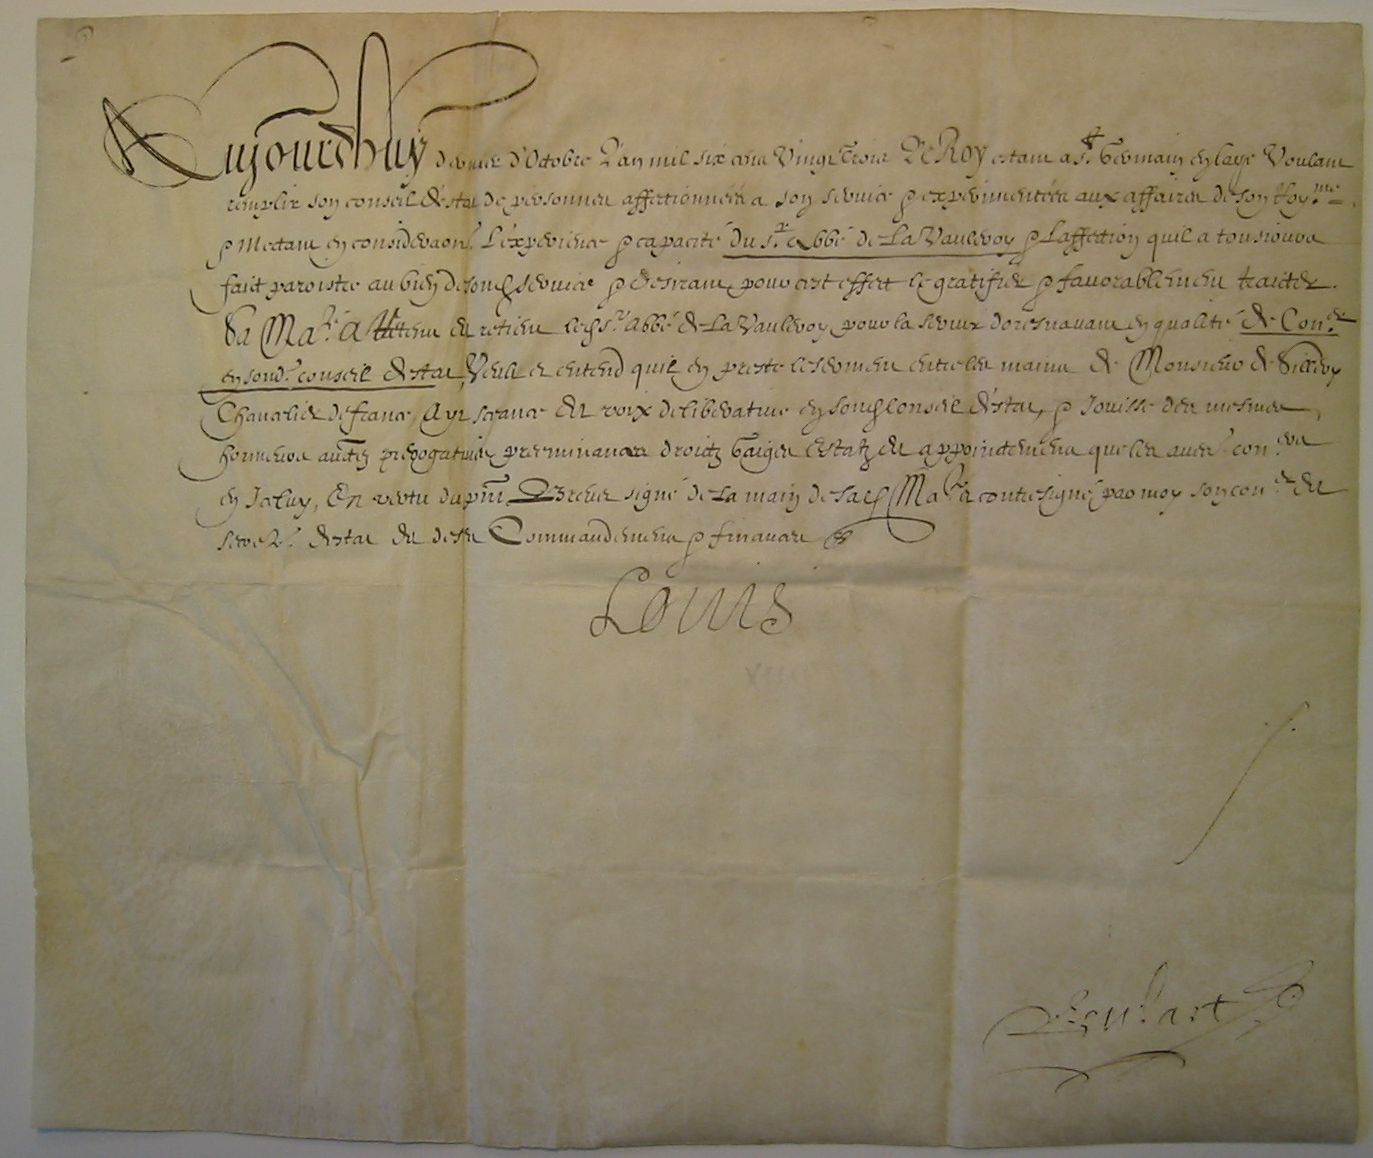 Aujourdhuy dernier d'Octobre L'an mil six cens vingt trois Le Roy estant a St Germain en laye Voulant
remplir son conseil d'estat de personnes affectionnées a son service et experimentées aux affaires de son Roy.me
et Mettant en consideraon. L'experience et capacité du s.r Abbé de La Vauleroy et L'affection quil a tousiours
fait paroistre au bien de sond service et desirant pour cest effect le gratifier et favorablement traicter.
Sa Ma.té a retenu et retient led s.r Abbé de La Vauleroy pour la servir doresnavant en qualité de Con.er
en sond.t conseil d'estat, Veult et entend quil en preste le serment entre les mains de Monsieur de Sillery
Chancelier de france, Ayt seance et voix deliberative en sond Conseil d'estat, et Jouisse des mesmes
honneurs auctez prerogatives preeminances droictz gaiges estatz et appointemens que les aues con.ers
en Iceluy, En vertu du pnt Brevet signé de la main de sad Ma.té et contresigné par moy son con.er et
secre.re d'estat et de ses Commandemens et finances
Louis